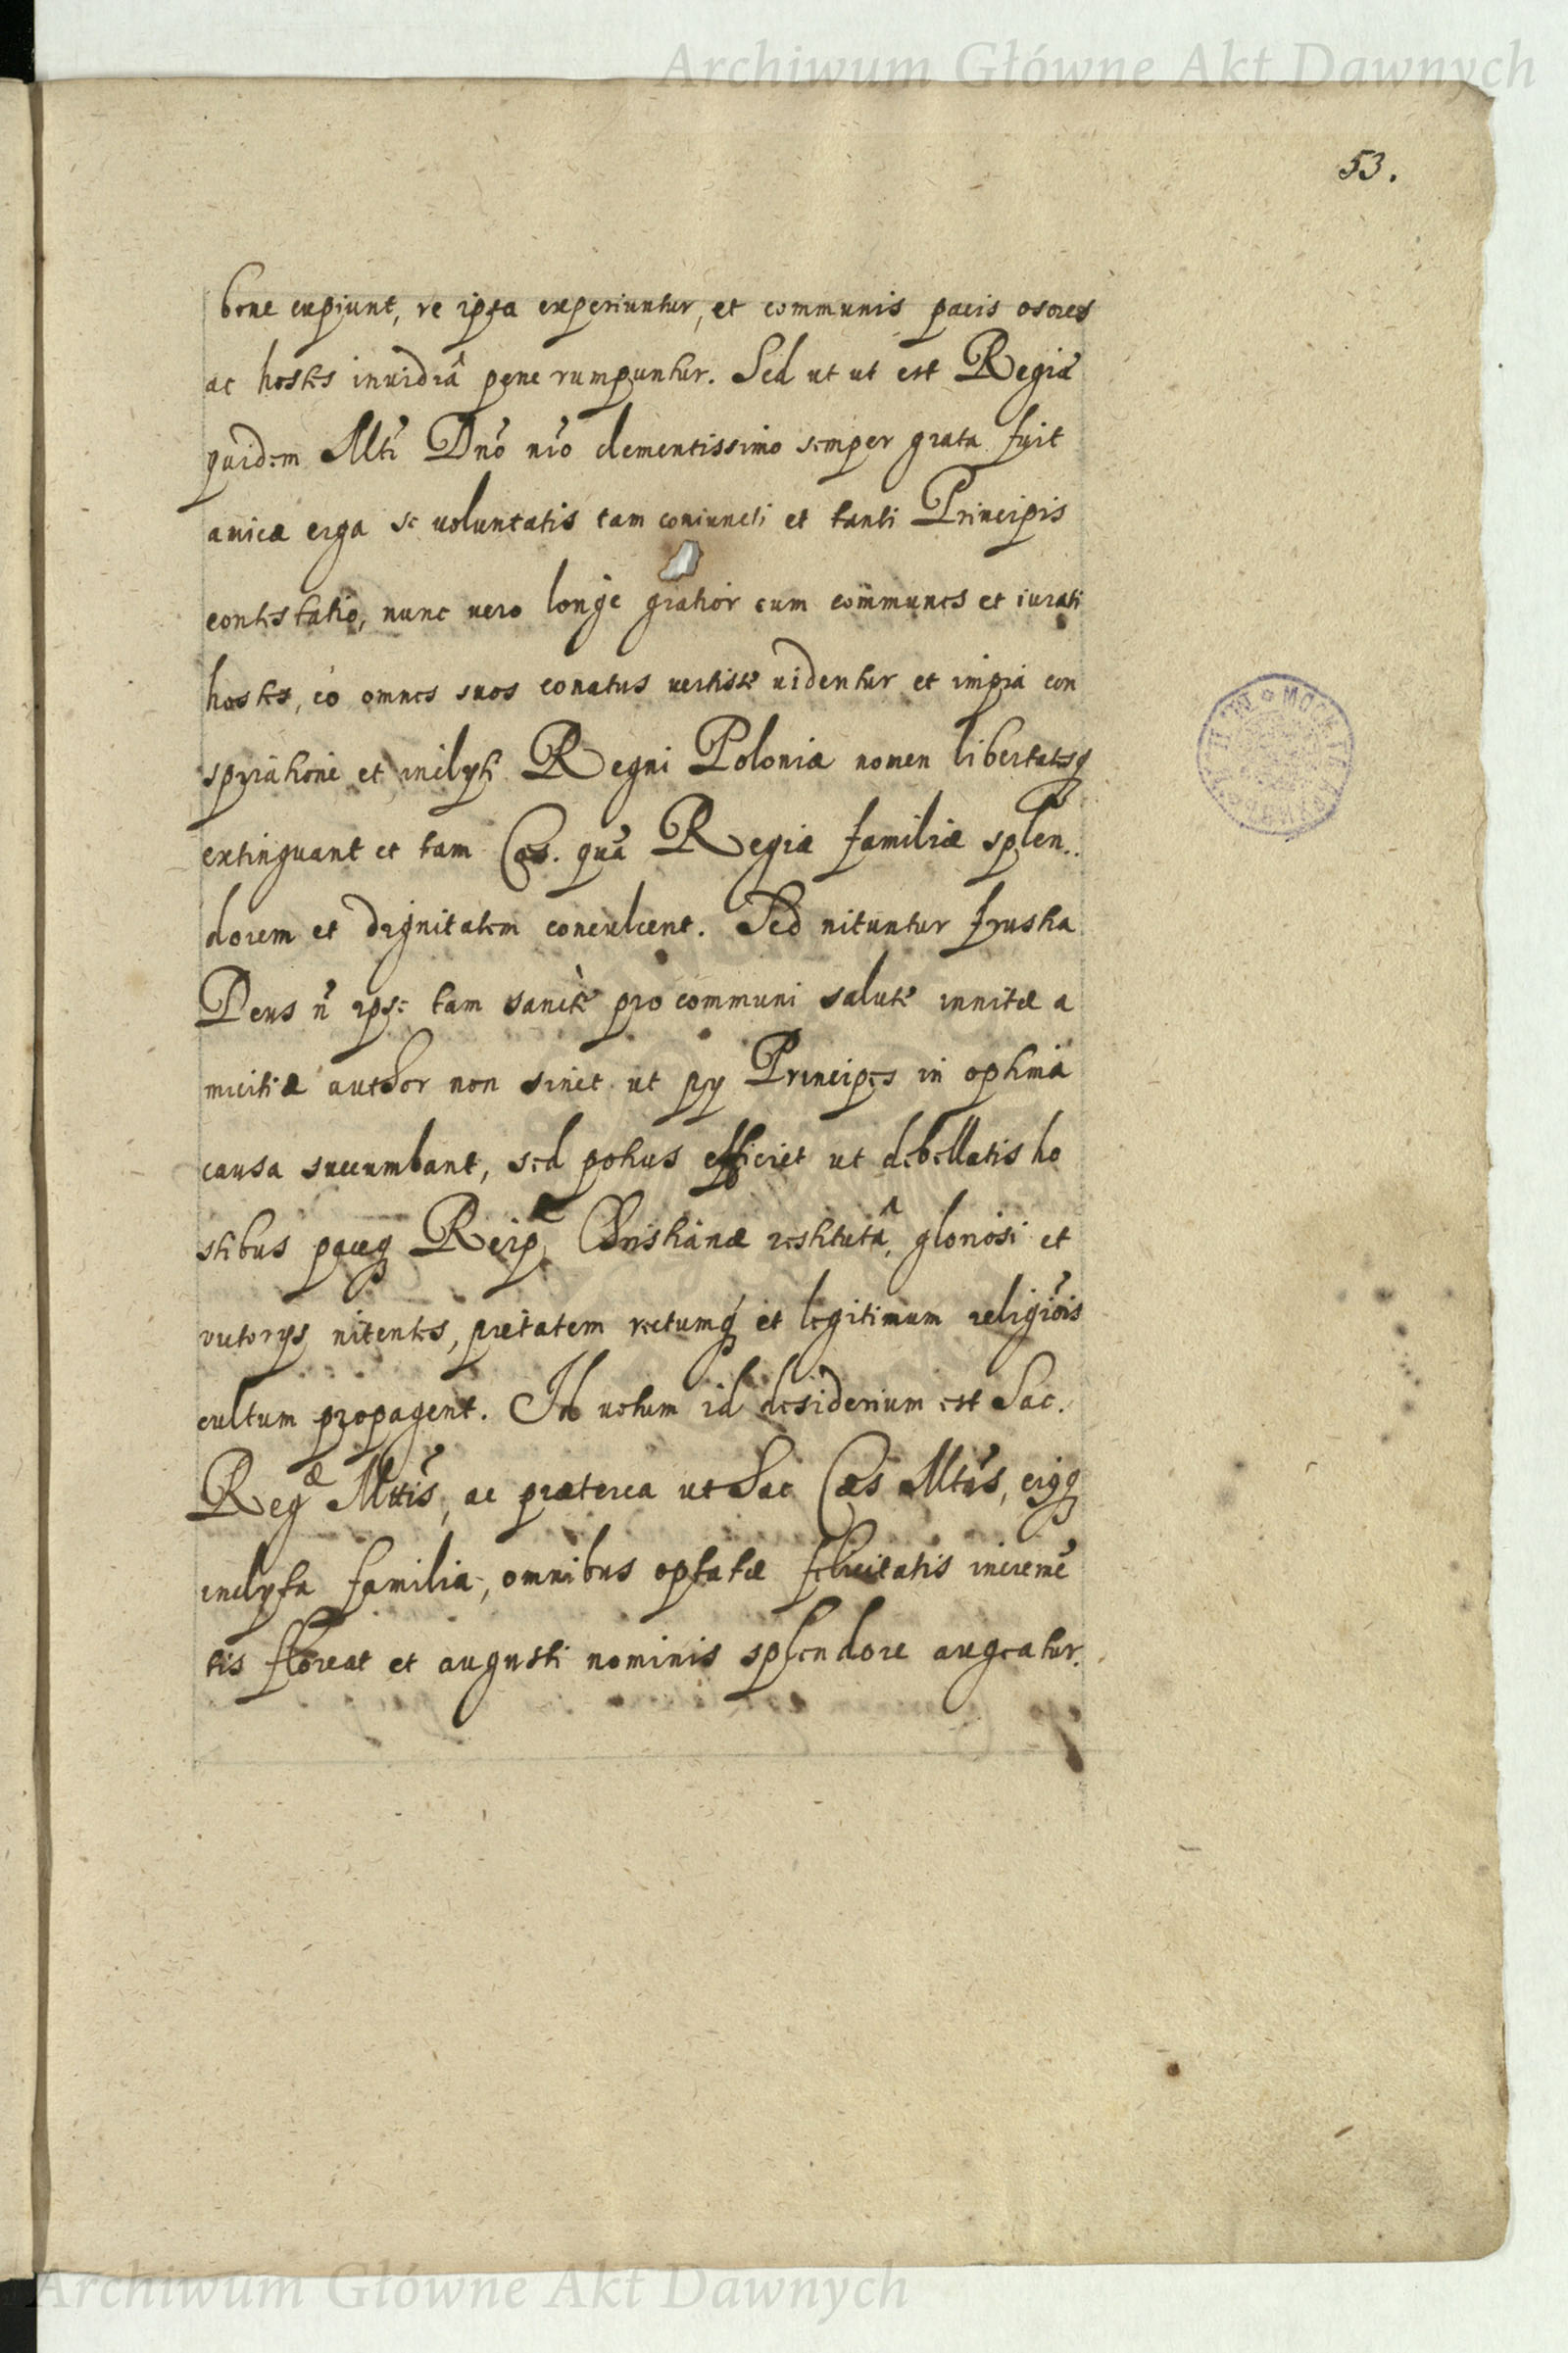 Archiwum Główne Akt Dawnych
53.
bene cupiunt, re ipsa experiuntur, et communis pacis osores
ac hostes inuidiâ pene rumpuntur. Sed ut ut est Regiæ
quidem Mtī Dnō nrō clementissimo semper grata fuit
amicæ erga se uoluntatis tam coniuncti et tanti Principis
contestatio, nunc uero longe gratior cum communes et iurati
hostes, eò omnes suos conatus uertisse uidentur et impia con
spiratione et inclyti Regni Poloniæ nomen libertatesq
extinguant et tam Cæs. quā Regiæ familiæ splen..
dorem et dignitatem conculcent. Sed nituntur frustra
Deus n̄ ipse tam sanctè pro communi salute initæ a
micitiæ author non sinet ut pij Principes in optima
causa succumbant, sed potius efficiet ut debellatis ho
stibus paceq Reip, Christianæ restitutâ, gloriosi et
uictorijs nitentes, pietatem rectumq et legitimum religiōis
cultum propagent. Id uotum id desiderium est Sac.
Regæ Mttis, ac præterea ut Sac Cæs Mtās, eiusq
inclyta familia, omnibus optatæ felicitatis incremē
tis floreat et augusti nominis splendore augeatur.
Archiwum Główne Akt Dawnych